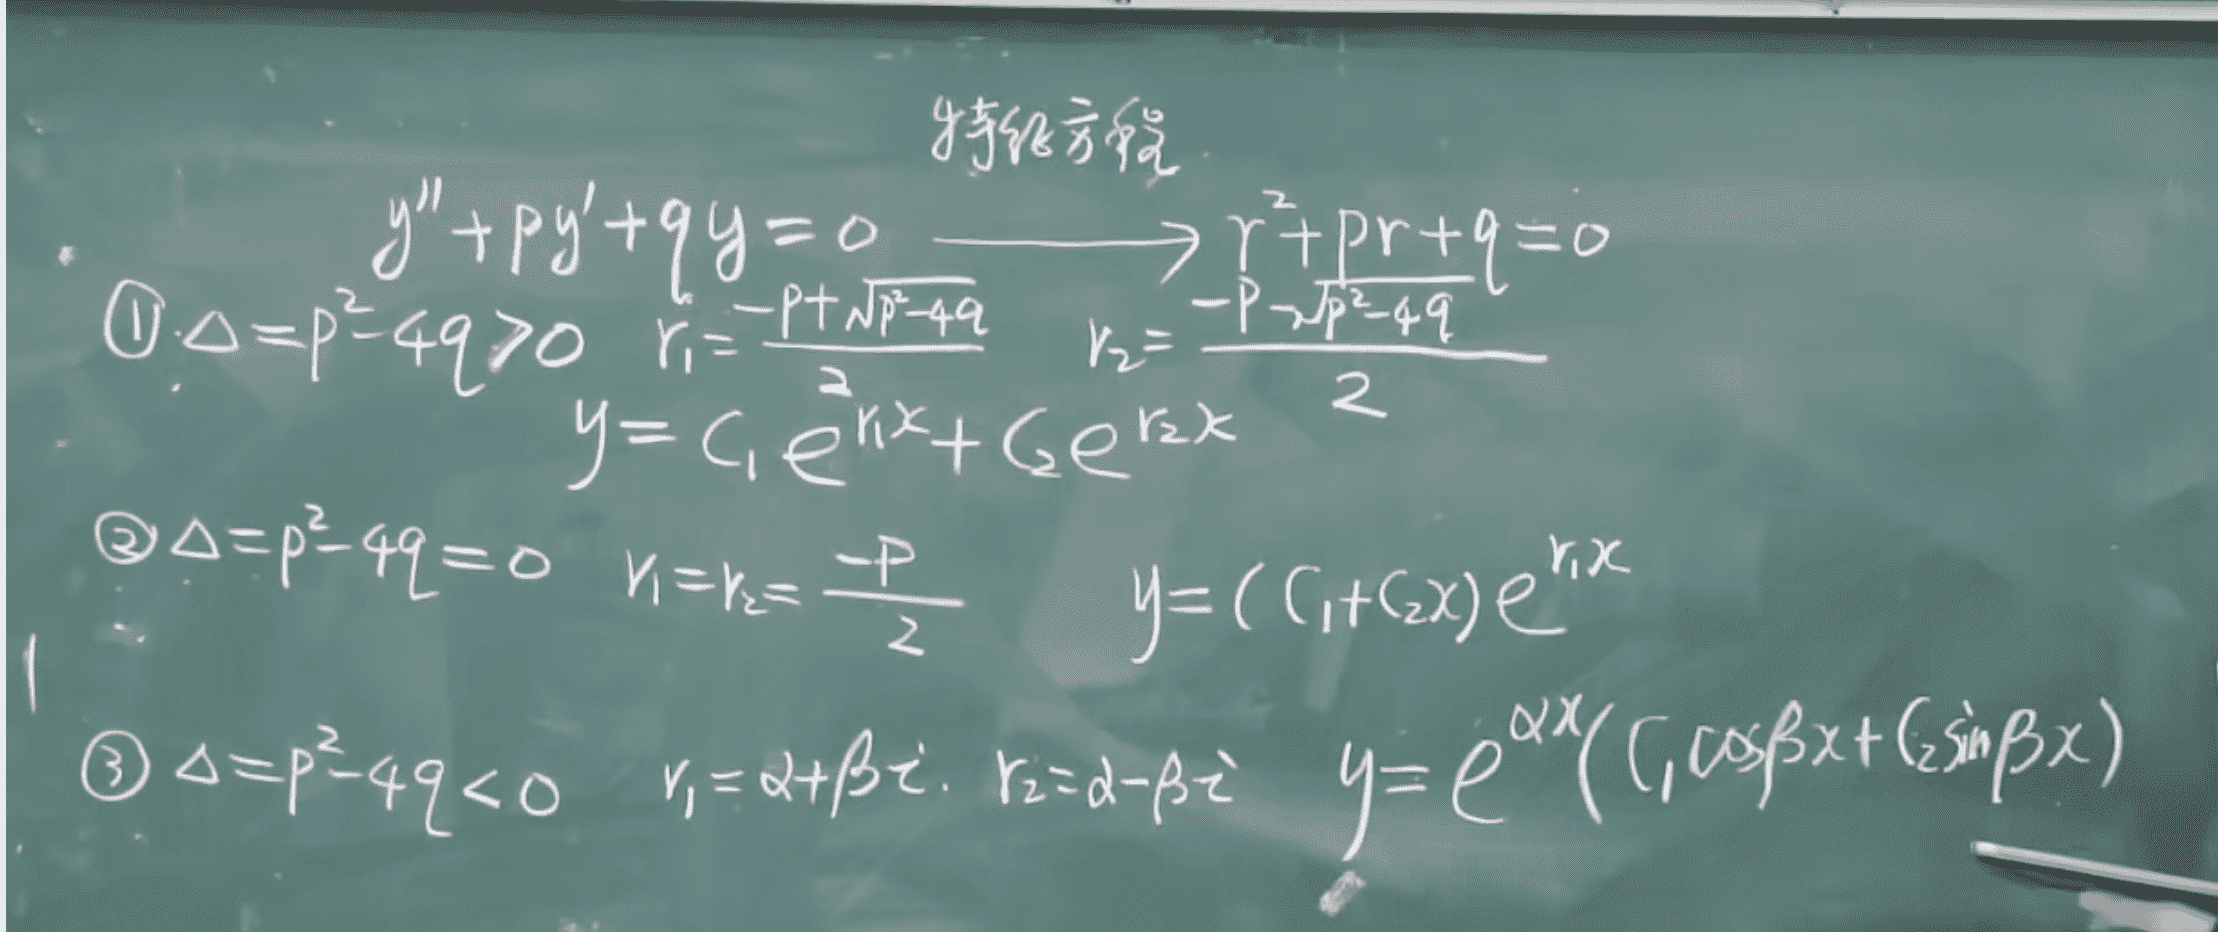 特征方程
y''+py'+qy=0 → r²+pr+q=0
① Δ=p²-4q>0 r₁=(-p+√(p²-4q))/2 r₂=(-p-√(p²-4q))/2
y=C₁e^{r₁x}+C₂e^{r₂x}
② Δ=p²-4q=0 r₁=r₂=-p/2 y=(C₁+C₂x)e^{r₁x}
③ Δ=p²-4q<0 r₁=α+βi. r₂=α-βi y=e^{αx}(C₁cosβx+C₂sinβx)